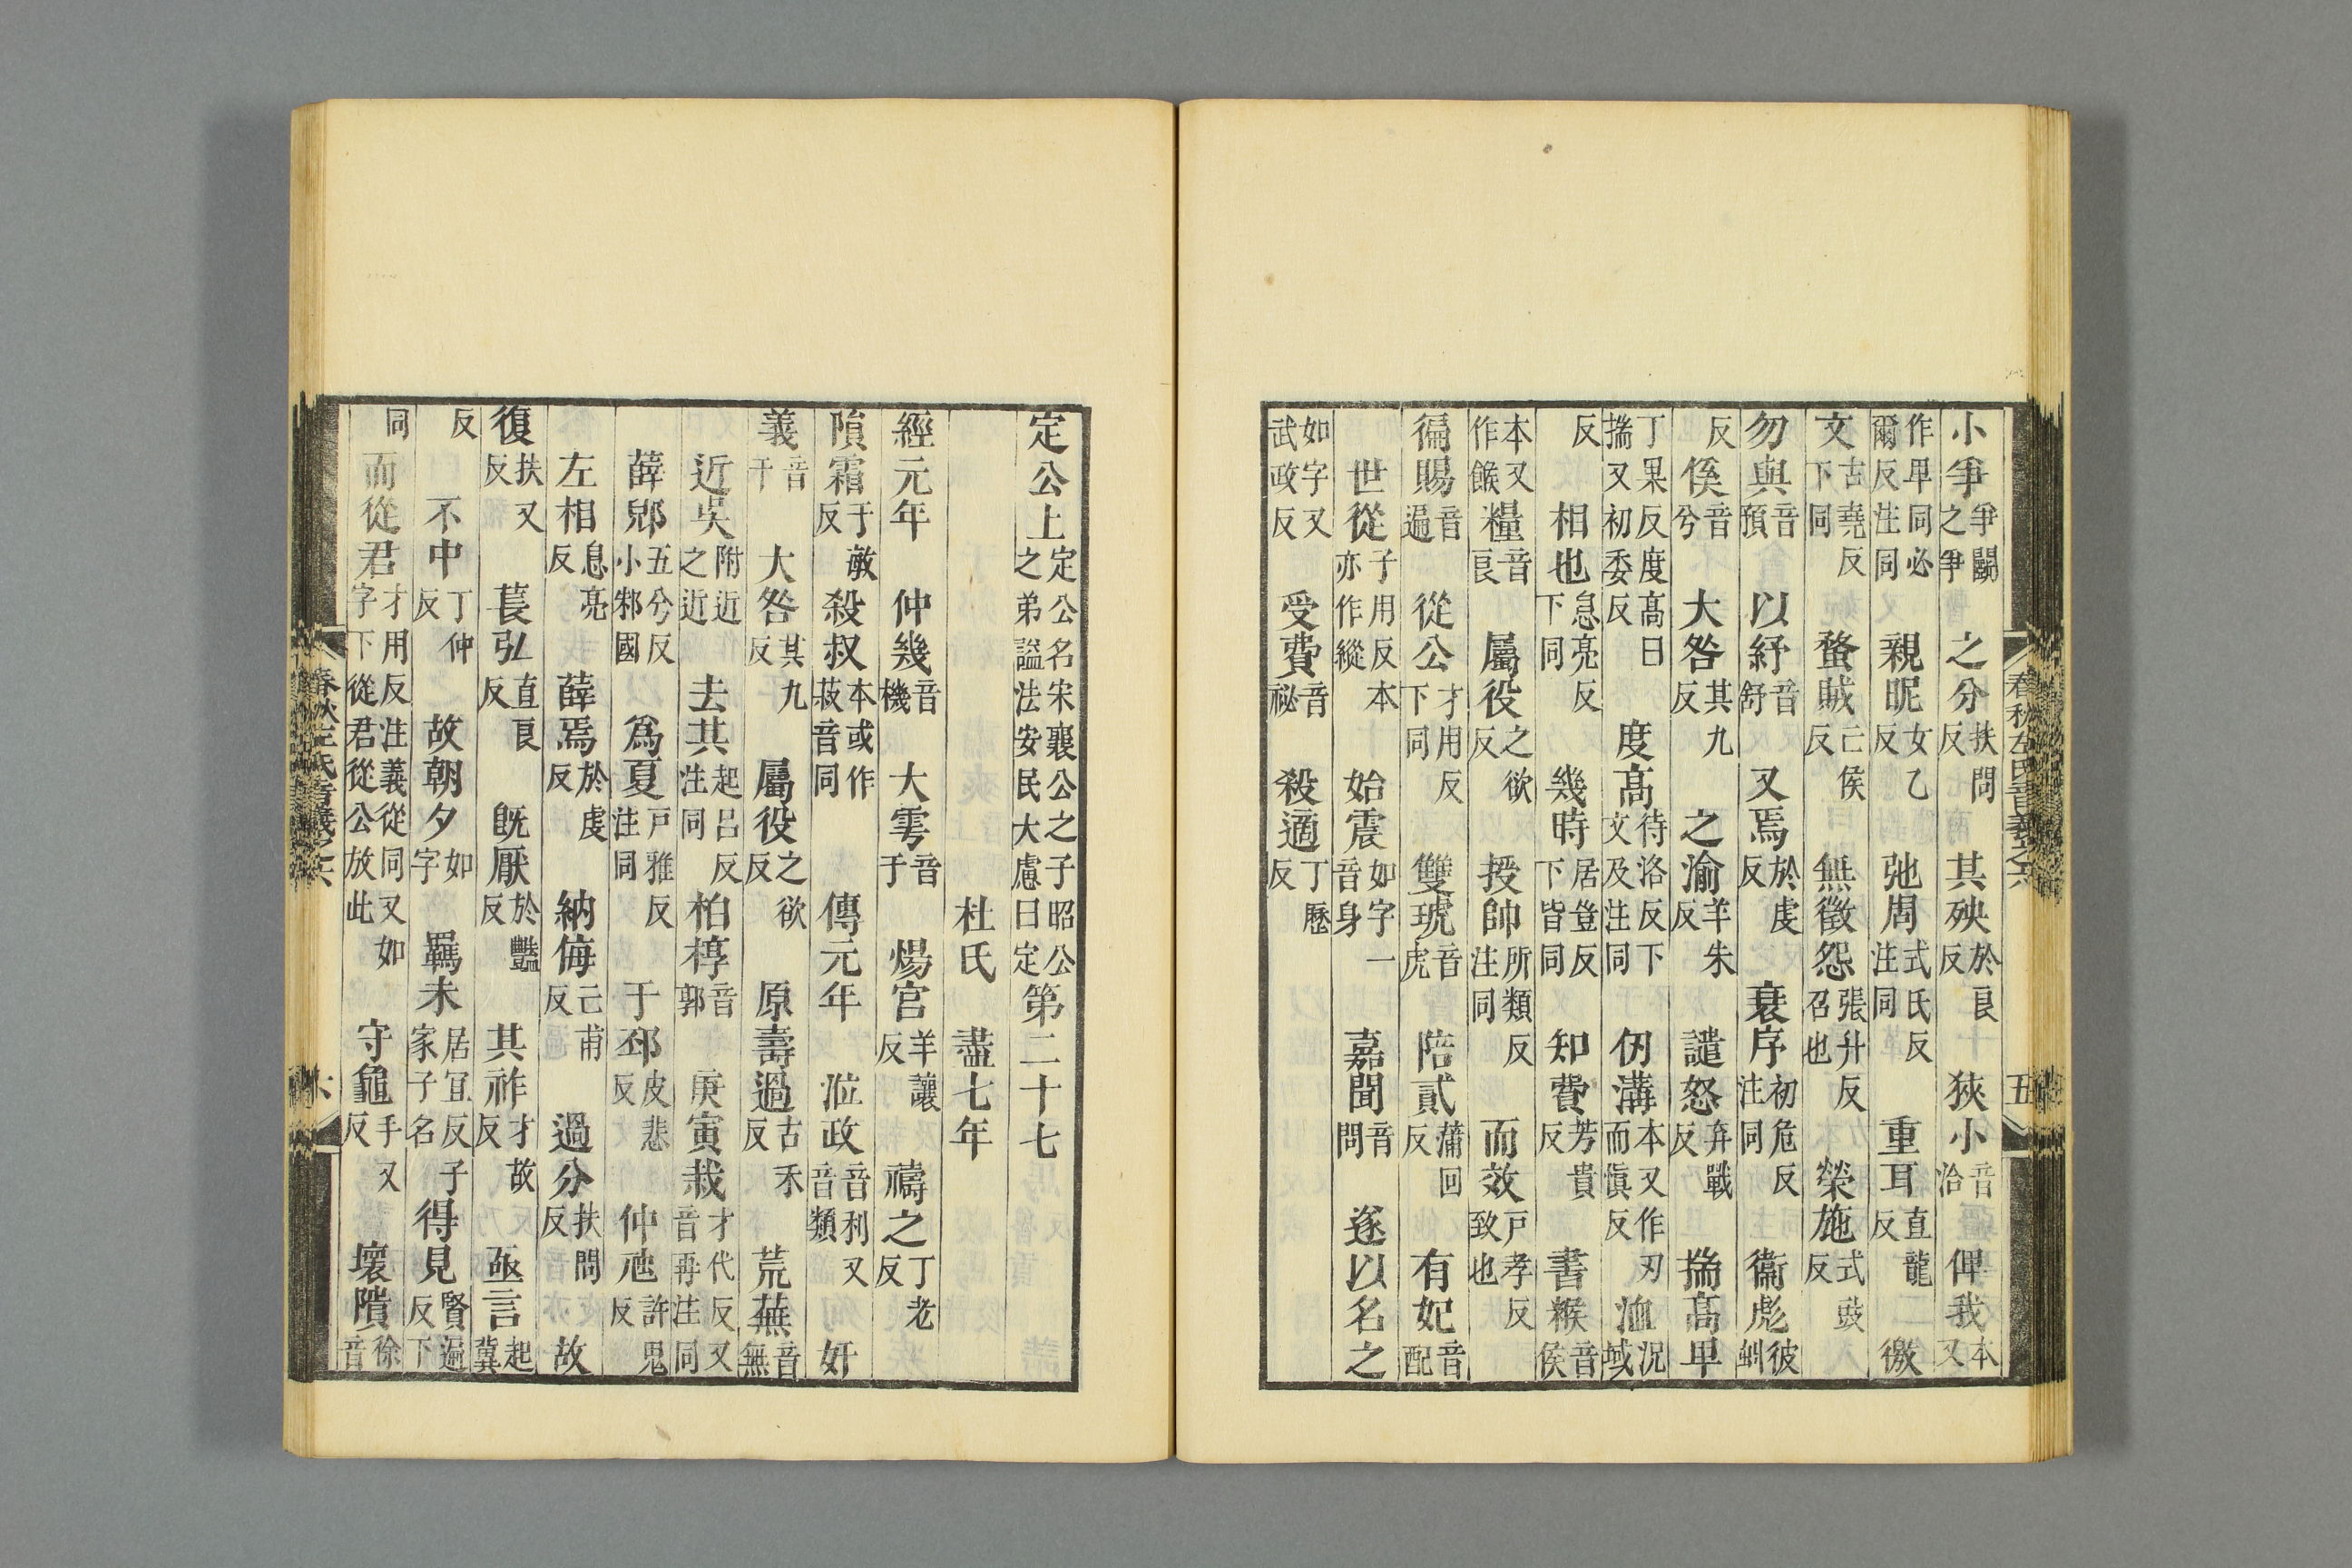 小爭爭鬭之爭之分扶問反其殃於良反狹小音洽俾我本又
作卑同必爾反注同親昵女乙反弛周式氏反注同重耳直龍反徼
文古堯反下同蝥賊亡侯反無徵怨張升反召也榮施式豉反
勿與音預以紓音舒又焉於虔反衰序初危反注同衞彪彼虯
反傒音兮大咎其九反之渝羊朱反譴怒弃戰反揣高卑
丁果反度高曰揣又初委反度高待洛反下文及注同仞溝本又作刃而慎反洫況域
反相也息亮反下同幾時居豈反下皆同知費芳貴反書糇音侯
本又作餱糧音良屬役之欲反授帥所類反注同而效戶孝反致也
徧賜音遍從公才用反下同雙琥音虎陪貳蒲回反有妃音配
世從子用反本亦作縱始震如字一音身嘉聞音問遂以名之
如字又武政反受費音祕殺適丁歷反
春秋左氏音義之六
五
定公上定公名宋襄公之子昭公之弟謚法安民大慮曰定第二十七
杜氏盡七年
經元年仲幾音機大雩音于煬宮羊讓反禱之丁老反
隕霜于敏反殺叔本或作菽音同傳元年涖政音利又音類奸
義音干大咎其九反屬役之欲反原壽過古禾反荒蕪音無
近吳附近之近去其起呂反注同柏椁音郭庚寅栽才代反又音再注同
薛郳五兮反小邾國爲夏戶雅反注同于邳皮悲反仲虺許鬼反
左相息亮反薛焉於虔反納侮亡甫反過分扶問反故
復扶又反萇弘直良反旣厭於豔反其祚才故反亟言起冀
反不中丁仲反故朝夕如字羈未居宜反子家子名得見賢遍反下
同而從君才用反注義從同又如字下從君從公放此守龜手又反壞隤徐音
春秋左氏音義之六
六